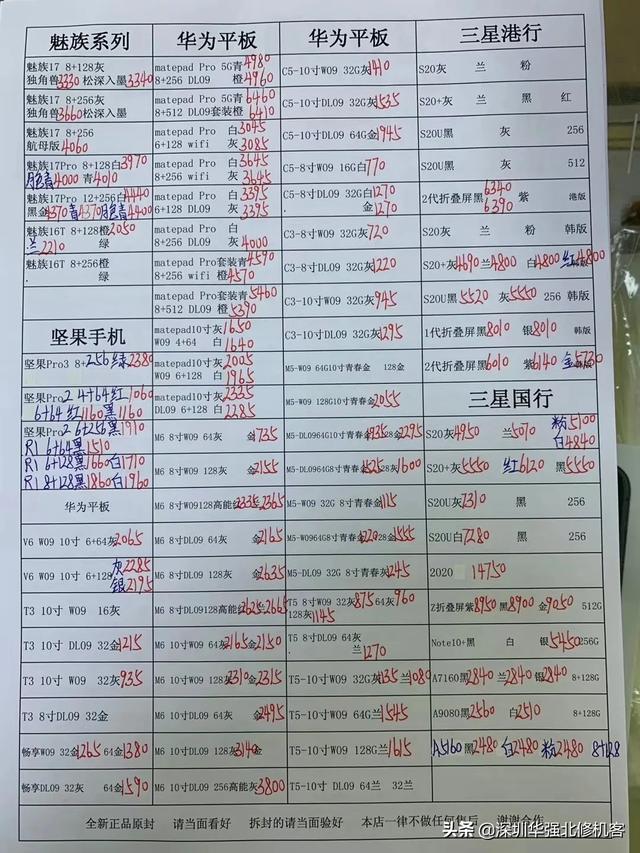 魅族系列
魅族17 8+128灰
独角兽3330 松深入墨3340
魅族17 8+256灰
独角兽3660松深入墨
魅族17 8+256
航母版4060
魅族17Pro 8+128白3970
4000 青4010
魅族17Pro 12+256白4440
黑金4370青4370 4400
魅族16T 8+128橙2050
兰2210 绿
魅族16T 8+256橙
绿
坚果手机
坚果Pro3 8+256绿2380
坚果Pro2 4+64红1060
6+64红1160黑1160
坚果Pro2 6+256黑1910
R1 6+64黑1510
R1 6+128黑1660白1710
R1 8+128黑1860白1960
华为平板
V6 W09 10寸 6+64灰2065
V6 W09 10寸 6+128灰2285
银2195
T3 10寸 W09 16灰
T3 10寸 DL09 32金1215
T3 10寸 W09 32灰935
T3 8寸DL09 32金
畅享W09 32金1265 64金1380
畅享DL09 32灰 64金1590
华为平板
matepad Pro 5G青4980
8+256 DL09 橙4960
matepad Pro 5G青6460
8+512 DL09套装橙6410
matepad Pro 白3045
6+128 wifi 灰3085
matepad Pro 白3645
8+256 wifi 灰3645
matepad Pro 白3395
6+128 DL09 灰3395
matepad Pro 白
8+256 DL09 灰4000
matepad Pro套装青4590
8+256 wifi 橙4570
matepad Pro套装青5460
8+512 DL09 橙5390
matepad10寸灰1650
W09 4+64 白1640
matepad10寸灰2005
W09 6+128 白1965
matepad10寸灰2335
DL09 6+128 白2285
M6 8寸W09 64灰 金1735
M6 8寸W09 128灰 金2155
M6 8寸W09128高能红2335 2365
M6 8寸DL09 64灰 金2165
M6 8寸DL09 128灰 金2635
M6 8寸DL09128高能红2625兰2665
M6 10寸W09 64灰2165金2150
M6 10寸W09 128灰2310金2315
M6 10寸DL09 64灰 金2495
M6 10寸DL09 128灰3140金
M6 10寸DL09 256高能灰3800
华为平板
C5-10寸W09 32G灰1410
C5-10寸DL09 32G灰1535
C5-10寸DL09 64G金1945
C5-8寸W09 16G白770
C5-8寸DL09 32G白1270
金1270
C3-8寸W09 32G灰720
C3-8寸DL09 32G灰1220
C3-10寸W09 32G灰945
C3-10寸DL09 32G灰1295
M5-W09 64G10寸青春金 128金
M5-W09 128G10寸青春金2055
M5-DL0964G10寸青春金1935 2295
M5-DL0964G8寸青春金1525 灰1600
M5-W09 32G 8寸青春金1115
M5-W0964G8寸青春金1220 128金1555
M5-DL09 32G 8寸青春灰1245
T5 8寸W09 32灰875 64灰960
128灰1145
T5 8寸DL09 64灰
兰1270
T5-10寸W09 32G灰1135兰1080
T5-10寸W09 64G兰1545
T5-10寸W09 128G兰1615
T5-10寸 DL09 64兰 32兰
三星港行
S20灰 兰 粉
S20+灰 兰 黑 红
S20U黑 灰 256
S20U黑 灰 512
2代折叠屏黑6340 紫 港版
6390
S20灰 兰 粉 韩版
S20+灰4690兰4800白4800红4800
S20U黑5520灰5550 256 韩版
1代折叠屏黑8010 银8010 韩版
2代折叠屏黑6010 紫6140 金5730
三星国行
S20灰4950 兰5070 粉5100
白4840
S20+灰5550 红6120 黑5550
S20U灰7310 黑 256
S20U白7280 黑 256
2020 14750
Z折叠屏紫8950黑8900 金9050 512G
Note10+黑 白 银5450 256G
A7160黑2840兰2840银2840 8+128G
A9080黑2560 白2510 8+128G
A5160黑2480白2480粉2480 8+128
全新正品原封 请当面看好 拆封的请当面验好 本店一律不做任何售后 谢谢合作
头条 @深圳华强北修机客